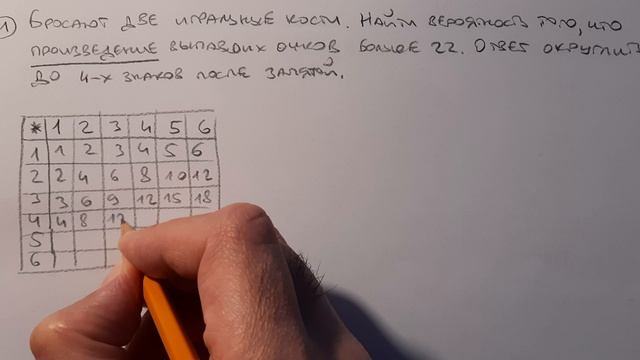 1) Бросают две игральные кости. Найти вероятность того, что
произведение выпавших очков больше 22. Ответ округлить
до 4-х знаков после запятой.
* 1 2 3 4 5 6
1 1 2 3 4 5 6
2 2 4 6 8 10 12
3 3 6 9 12 15 18
4 4 8 12
5
6